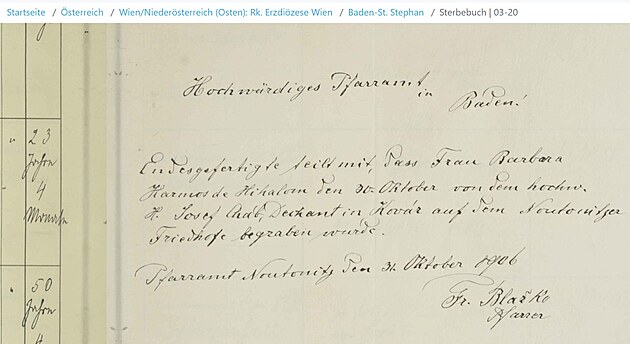 Startseite / Österreich / Wien/Niederösterreich (Osten): Rk. Erzdiözese Wien / Baden-St. Stephan / Sterbebuch | 03-20
Hochwürdiges Pfarramt
in
Baden!
" 23
Jahre
4
Monate
Endesgefertigte teilt mit, dass Frau Barbara
Harmos de Hihalom den 30. Oktober von dem hochw.
H. Josef Dechant in Kovár auf dem Noutonitzer
Friedhofe begraben wurde.
Pfarramt Noutonitz den 31. Oktober 1906
Fr. Blaško
Pfarrer
" 50
Jahre
4